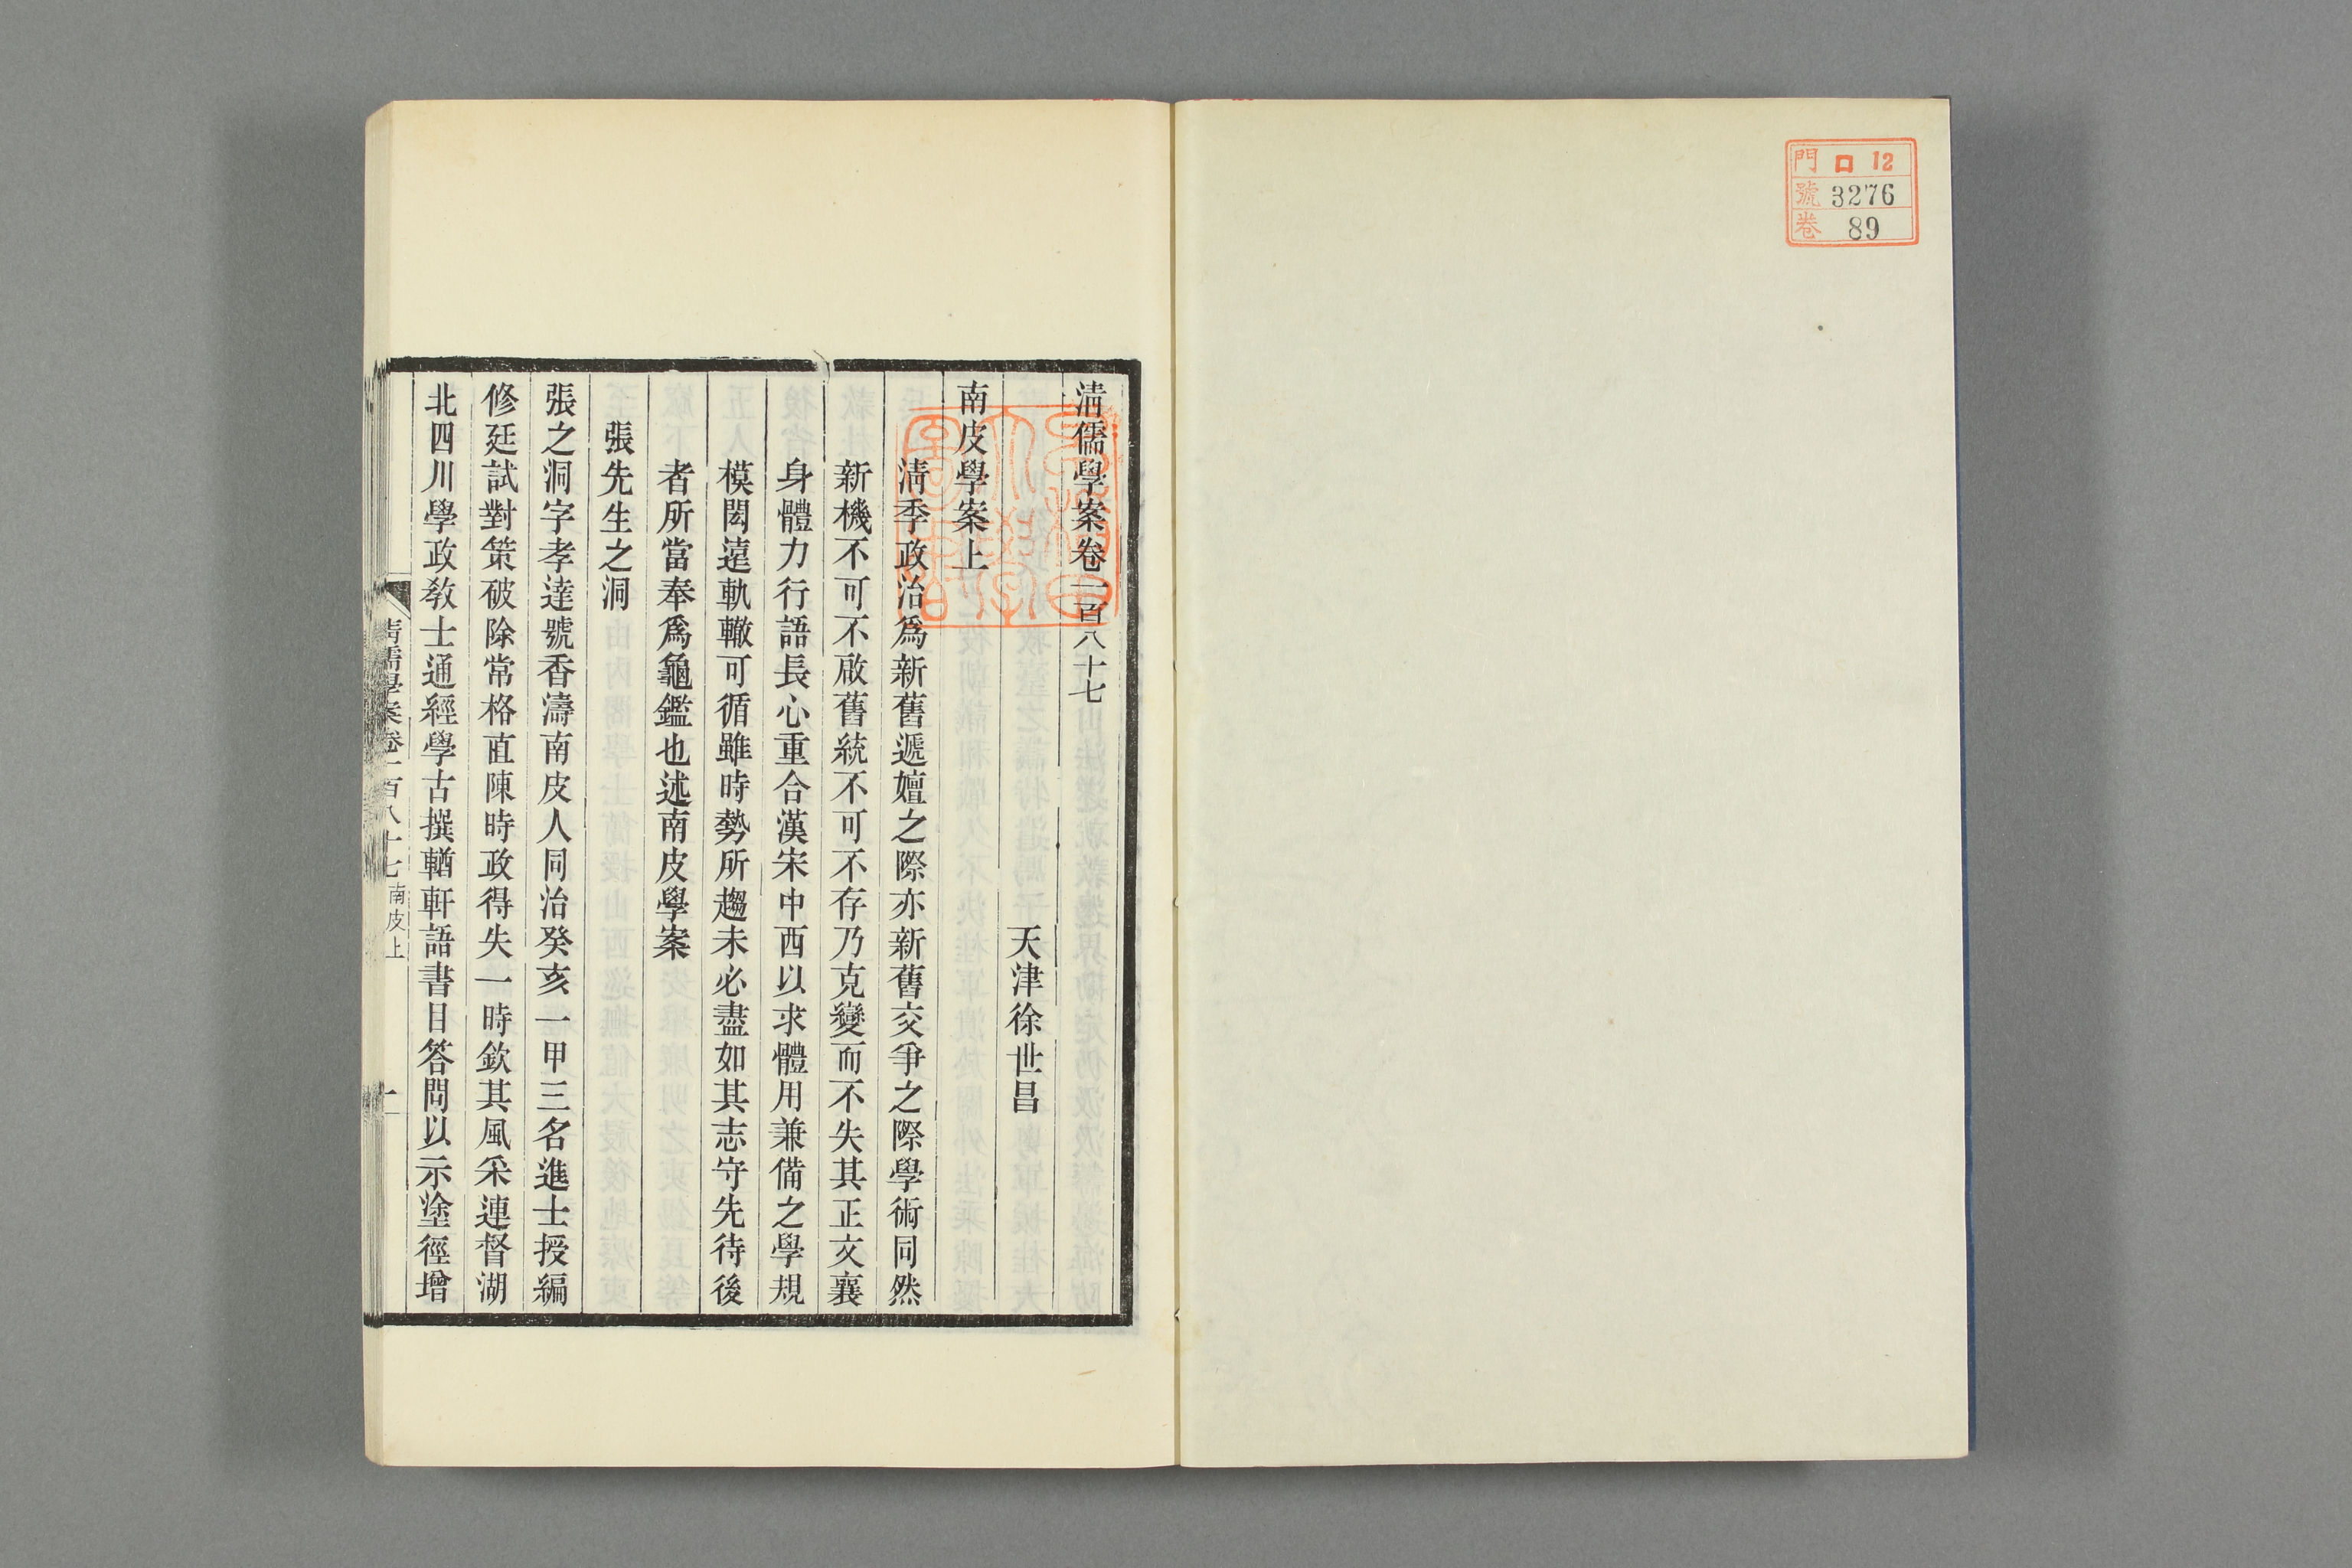 門 口 12
號 3276
卷 89
清儒學案卷一百八十七
天津徐世昌
南皮學案上
清季政治爲新舊遞嬗之際亦新舊交爭之際學術同然
新機不可不啟舊統不可不存乃克變而不失其正文襄
身體力行語長心重合漢宋中西以求體用兼備之學規
模閎遠軌轍可循雖時勢所趨未必盡如其志守先待後
者所當奉爲龜鑑也述南皮學案
張先生之洞
張之洞字孝達號香濤南皮人同治癸亥一甲三名進士授編
修廷試對策破除常格直陳時政得失一時欽其風采連督湖
北四川學政敎士通經學古撰輶軒語書目答問以示塗徑增
清儒學案卷一百八十七 南皮上
一